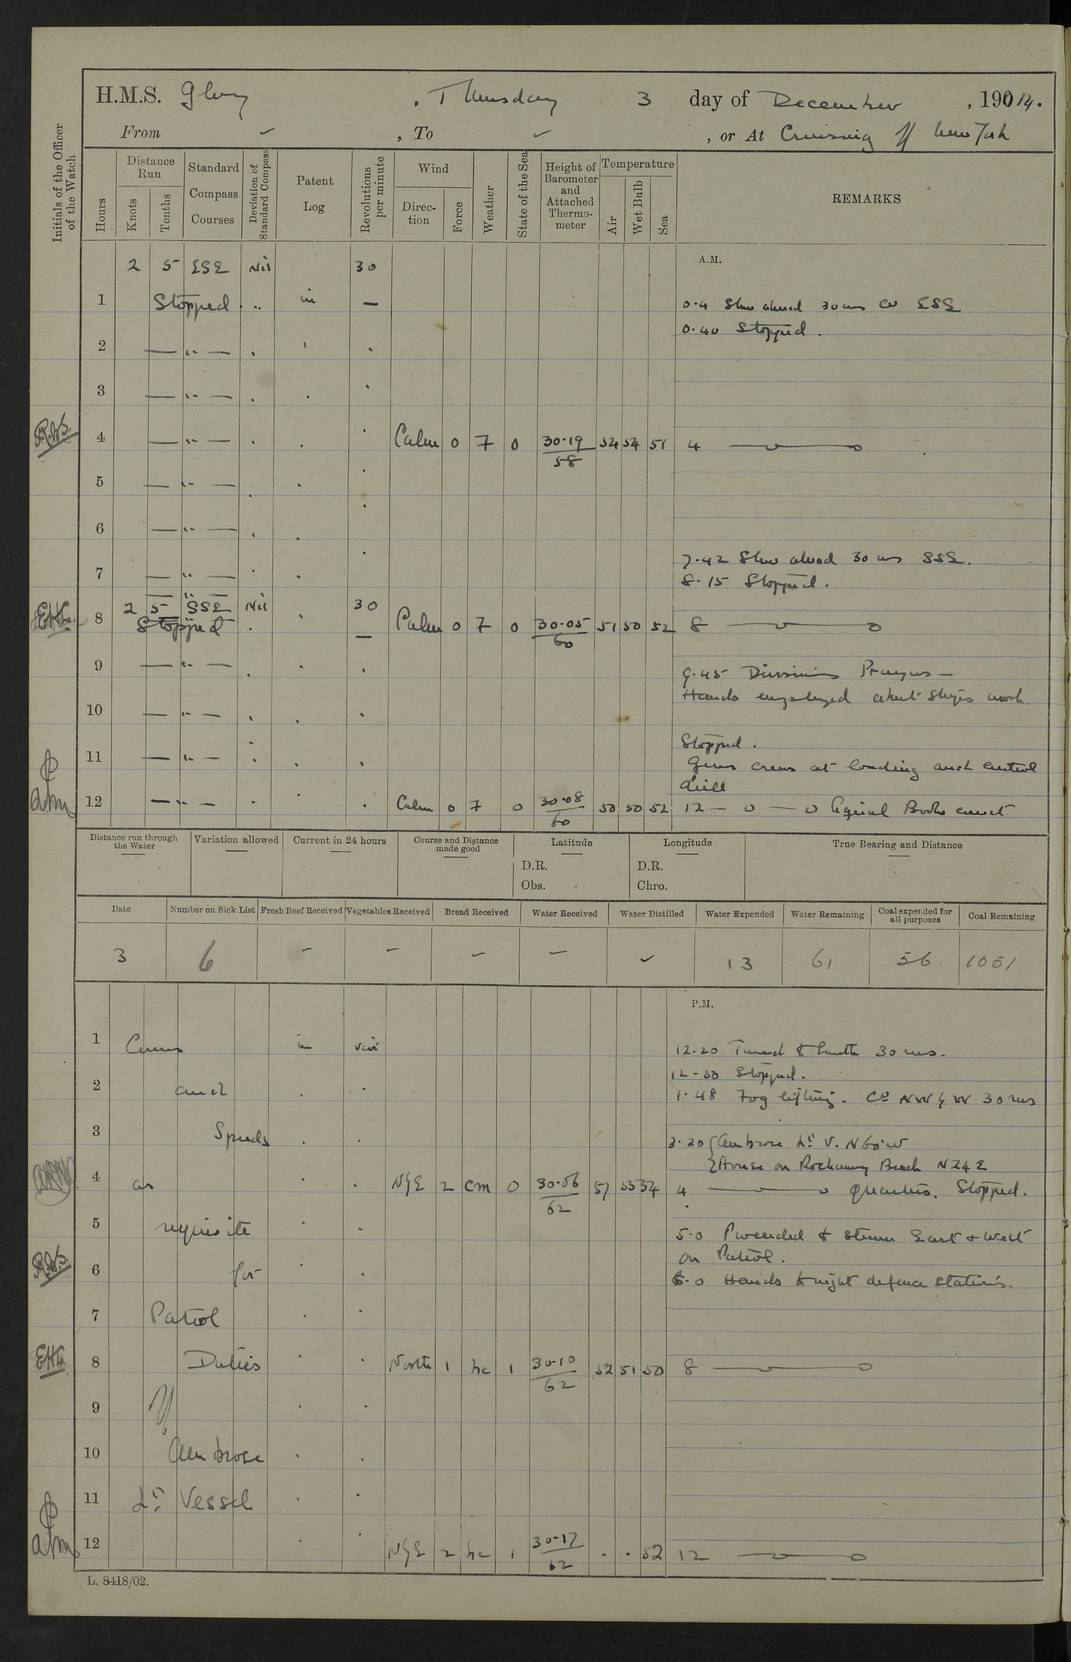 H.M.S. Glory , Thursday 3 day of December , 19014.
From ✓ , To ✓ , or At Cruising off New York
Initials of the Officer of the Watch
Hours
Distance Run
Knots
Tenths
Standard Compass Courses
Deviation of Standard Compass
Patent Log
Revolutions per minute
Wind
Direction
Force
Weather
State of the Sea
Height of Barometer and Attached Thermometer
Temperature
Air
Wet Bulb
Sea
REMARKS
A.M.
2 5 ESE Nil 30
1 Stopped .. in —
0.4 Slow ahead 30 revs Co ESE
0.40 Stopped.
2 — ,, — . ' .
3 — ,, — . . .
R.W.S. 4 — ,, — . . . Calm 0 7 0 30.19 54 54 51 4 —o—o
58
5 — ,, — . . .
6 — ,, — . . .
7.42 Slow ahead 30 revs SSE.
7 — ,, — . .
8.15 Stopped.
2 5 SSE Nil 30
8 Stopped . . — Calm 0 7 0 30.05 51 50 52 8 —o—o
60
9 — ,, — . . .
9.45 Divisions Prayers —
Hands employed about Ship's work.
10 — ,, — . . .
Stopped.
11 — ,, — . . .
Guns crews at loading and control
drill
12 — ,, — . . . Calm 0 7 0 30.08 50 50 52 12 — o — o
60
Distance run through the Water
Variation allowed
Current in 24 hours
Course and Distance made good
Latitude
D.R.
Obs.
Longitude
D.R.
Chro.
True Bearing and Distance
Date Number on Sick List Fresh Beef Received Vegetables Received Bread Received Water Received Water Distilled Water Expended Water Remaining Coal expended for all purposes Coal Remaining
3 6 – – – – ✓ 13 61 56 1051
P.M.
1 Courses in var
12.20 Turned to South 30 revs.
12-30 Stopped.
2 and . .
1.48 Fog lifting. Co NW by W 30 revs
3 Speeds . .
3.20 { Ambrose Lt V. N60°W
{ House on Rockaway Beach N24E
4 as . . NbyE 2 cm 0 30.06 57 53 54 4 —o—o Quarters. Stopped.
62
5 requisite . .
5.0 Proceeded to steam East & West
on Patrol.
R.W.S. 6 for . .
6.0 Hands to night defence stations.
7 Patrol . .
8 Duties . . North 1 bc 1 30.10 52 51 50 8 —o—o
62
9 off . .
10 Ambrose . .
11 Lt Vessel . .
12 . . NbyE 2 bc 1 30.12 . . 52 12 —o—o
62
L. 8418/02.